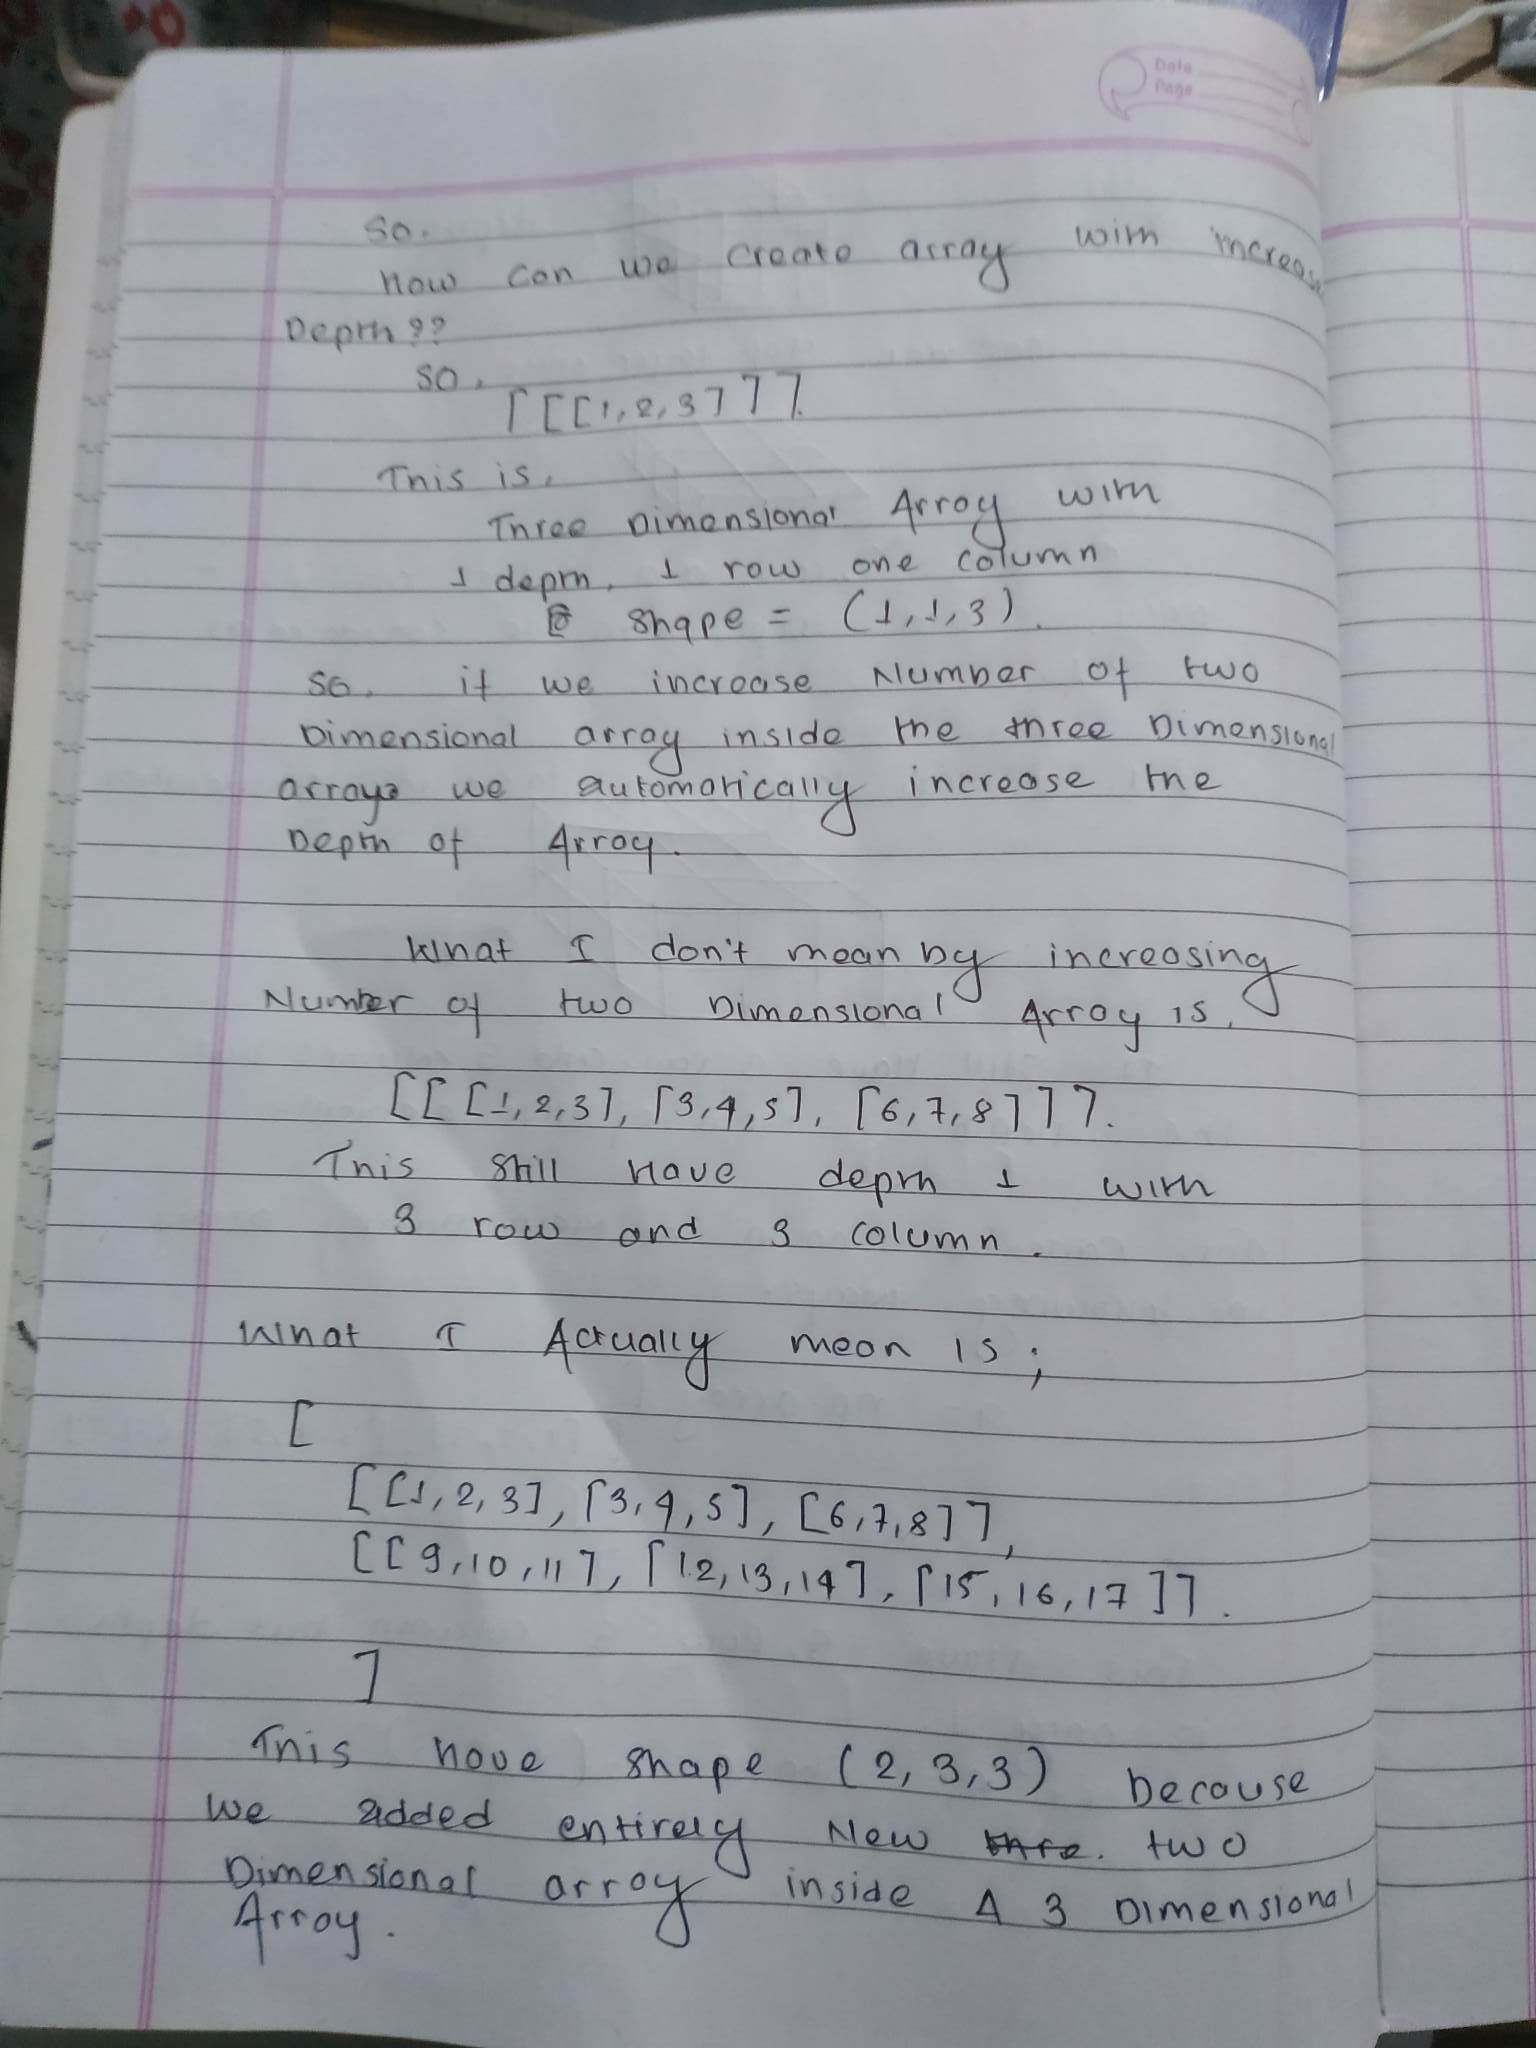 Date
Page
So.
how can we create array with increas
Depth??
so,
[[[1,2,3]]].
This is,
Three Dimensional Array with
1 depth, 1 row one column
shape = (1,1,3).
so, if we increase Number of two
Dimensional array inside the three Dimensional
array we automatically increase the
Depth of Array.
What I don't mean by increasing
Number of two Dimensional Array is,
[[[1,2,3], [3,4,5], [6,7,8]]].
This still have depth 1 with
3 row and 3 column.
What I Actually mean is;
[
[[1,2,3], [3,4,5], [6,7,8]],
[[9,10,11], [12,13,14], [15,16,17]].
]
This have shape (2,3,3) because
we added entirely New thre. two
Dimensional array inside A 3 Dimensional
Array.